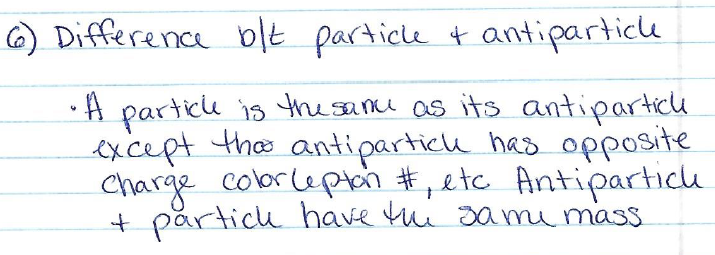 6) Difference b/t particle + antiparticle
• A particle is the same as its antiparticle
except the antiparticle has opposite
charge color lepton #, etc Antiparticle
+ particle have the same mass